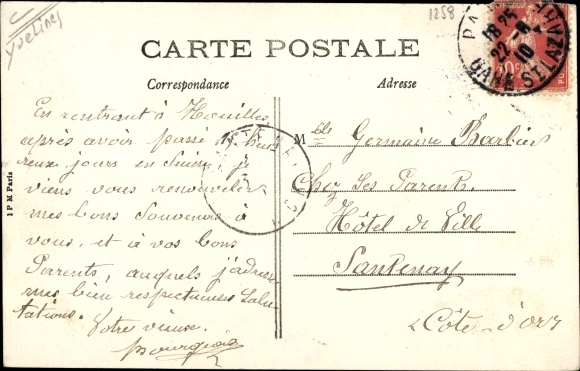 Yvelines
1258
PA
18 25
22 - 8
10
GARE ST LAZARE
10c
PO
CARTE POSTALE
Correspondance
Adresse
En rentrant à Houilles,
après avoir passé heu
reux jours en Suisse, je
viens vous renouveler
mes bons Souvenirs à
vous, et à vos bons
Parents, auxquels j'adresse
mes bien respectueuses Salu
tations. Votre vieux.
Bourgeois
Mlle Germaine Barbier
Chez Ses Parents
Hôtel de Ville
Santenay
Côte d'or
1 P M Paris